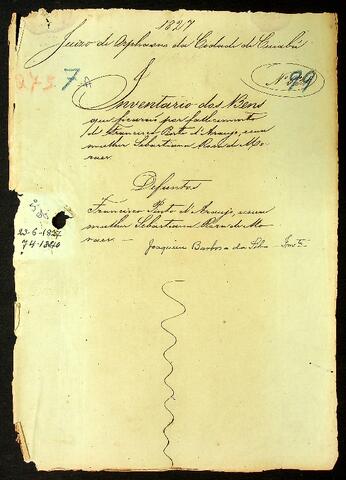 1827
Juizo de Orphaons da Cidade de Cuiabá
273
7
Nº 99
Inventario dos Bens
que ficarão por fallecimento
de Francisco Pinto d'Araujo, e sua
mulher Sebastiana Maria de Mo
raes.
Defuntos
Francisco Pinto d'Araujo, e sua
mulher Sebastiana Maria de Mo
raes —
Joaquim Barbosa da Silva - Inv.
23-6-1827
74-1340